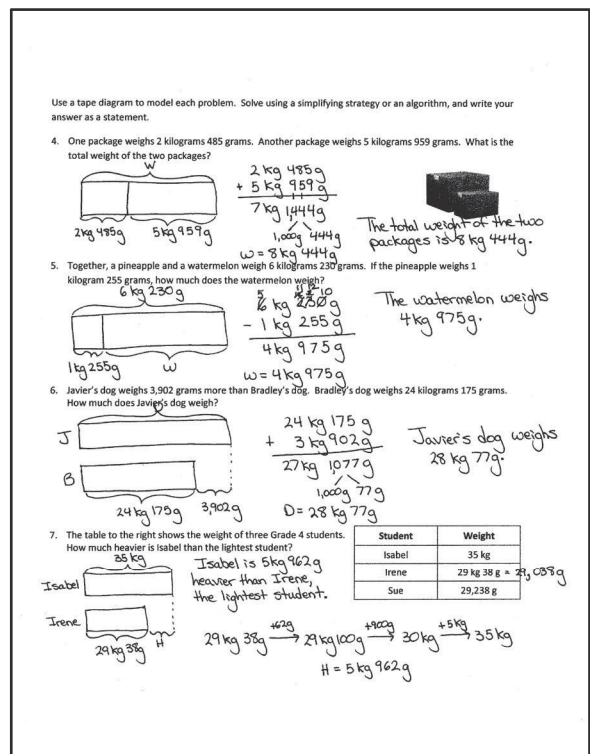 Use a tape diagram to model each problem. Solve using a simplifying strategy or an algorithm, and write your
answer as a statement.
4. One package weighs 2 kilograms 485 grams. Another package weighs 5 kilograms 959 grams. What is the
total weight of the two packages?
W
2kg 485g 5kg 959g
2 kg 485g
+ 5 kg 959 g
7 kg 1,444g
1,000g 444g
w = 8 kg 444g
The total weight of the two
packages is 8 kg 444g.
5. Together, a pineapple and a watermelon weigh 6 kilograms 230 grams. If the pineapple weighs 1
kilogram 255 grams, how much does the watermelon weigh?
6 kg 230g
1kg 255g w
5 11 12 10
6 kg 230g
- 1 kg 255g
4kg 975g
w = 4kg 975g
The watermelon weighs
4kg 975g.
6. Javier's dog weighs 3,902 grams more than Bradley's dog. Bradley's dog weighs 24 kilograms 175 grams.
How much does Javier's dog weigh?
J
B
24kg 175g 3,902g
24 kg 175 g
+ 3 kg 902g
27kg 1,077g
1,000g 77g
D = 28 kg 77g
Javier's dog weighs
28 kg 77g.
7. The table to the right shows the weight of three Grade 4 students.
How much heavier is Isabel than the lightest student?
35 kg
Isabel
Irene
29kg 38g H
Isabel is 5kg 962g
heavier than Irene,
the lightest student.
Student Weight
Isabel 35 kg
Irene 29 kg 38 g = 29,038g
Sue 29,238 g
29kg 38g +62g → 29kg 100g +900g → 30kg +5kg → 35kg
H = 5 kg 962g